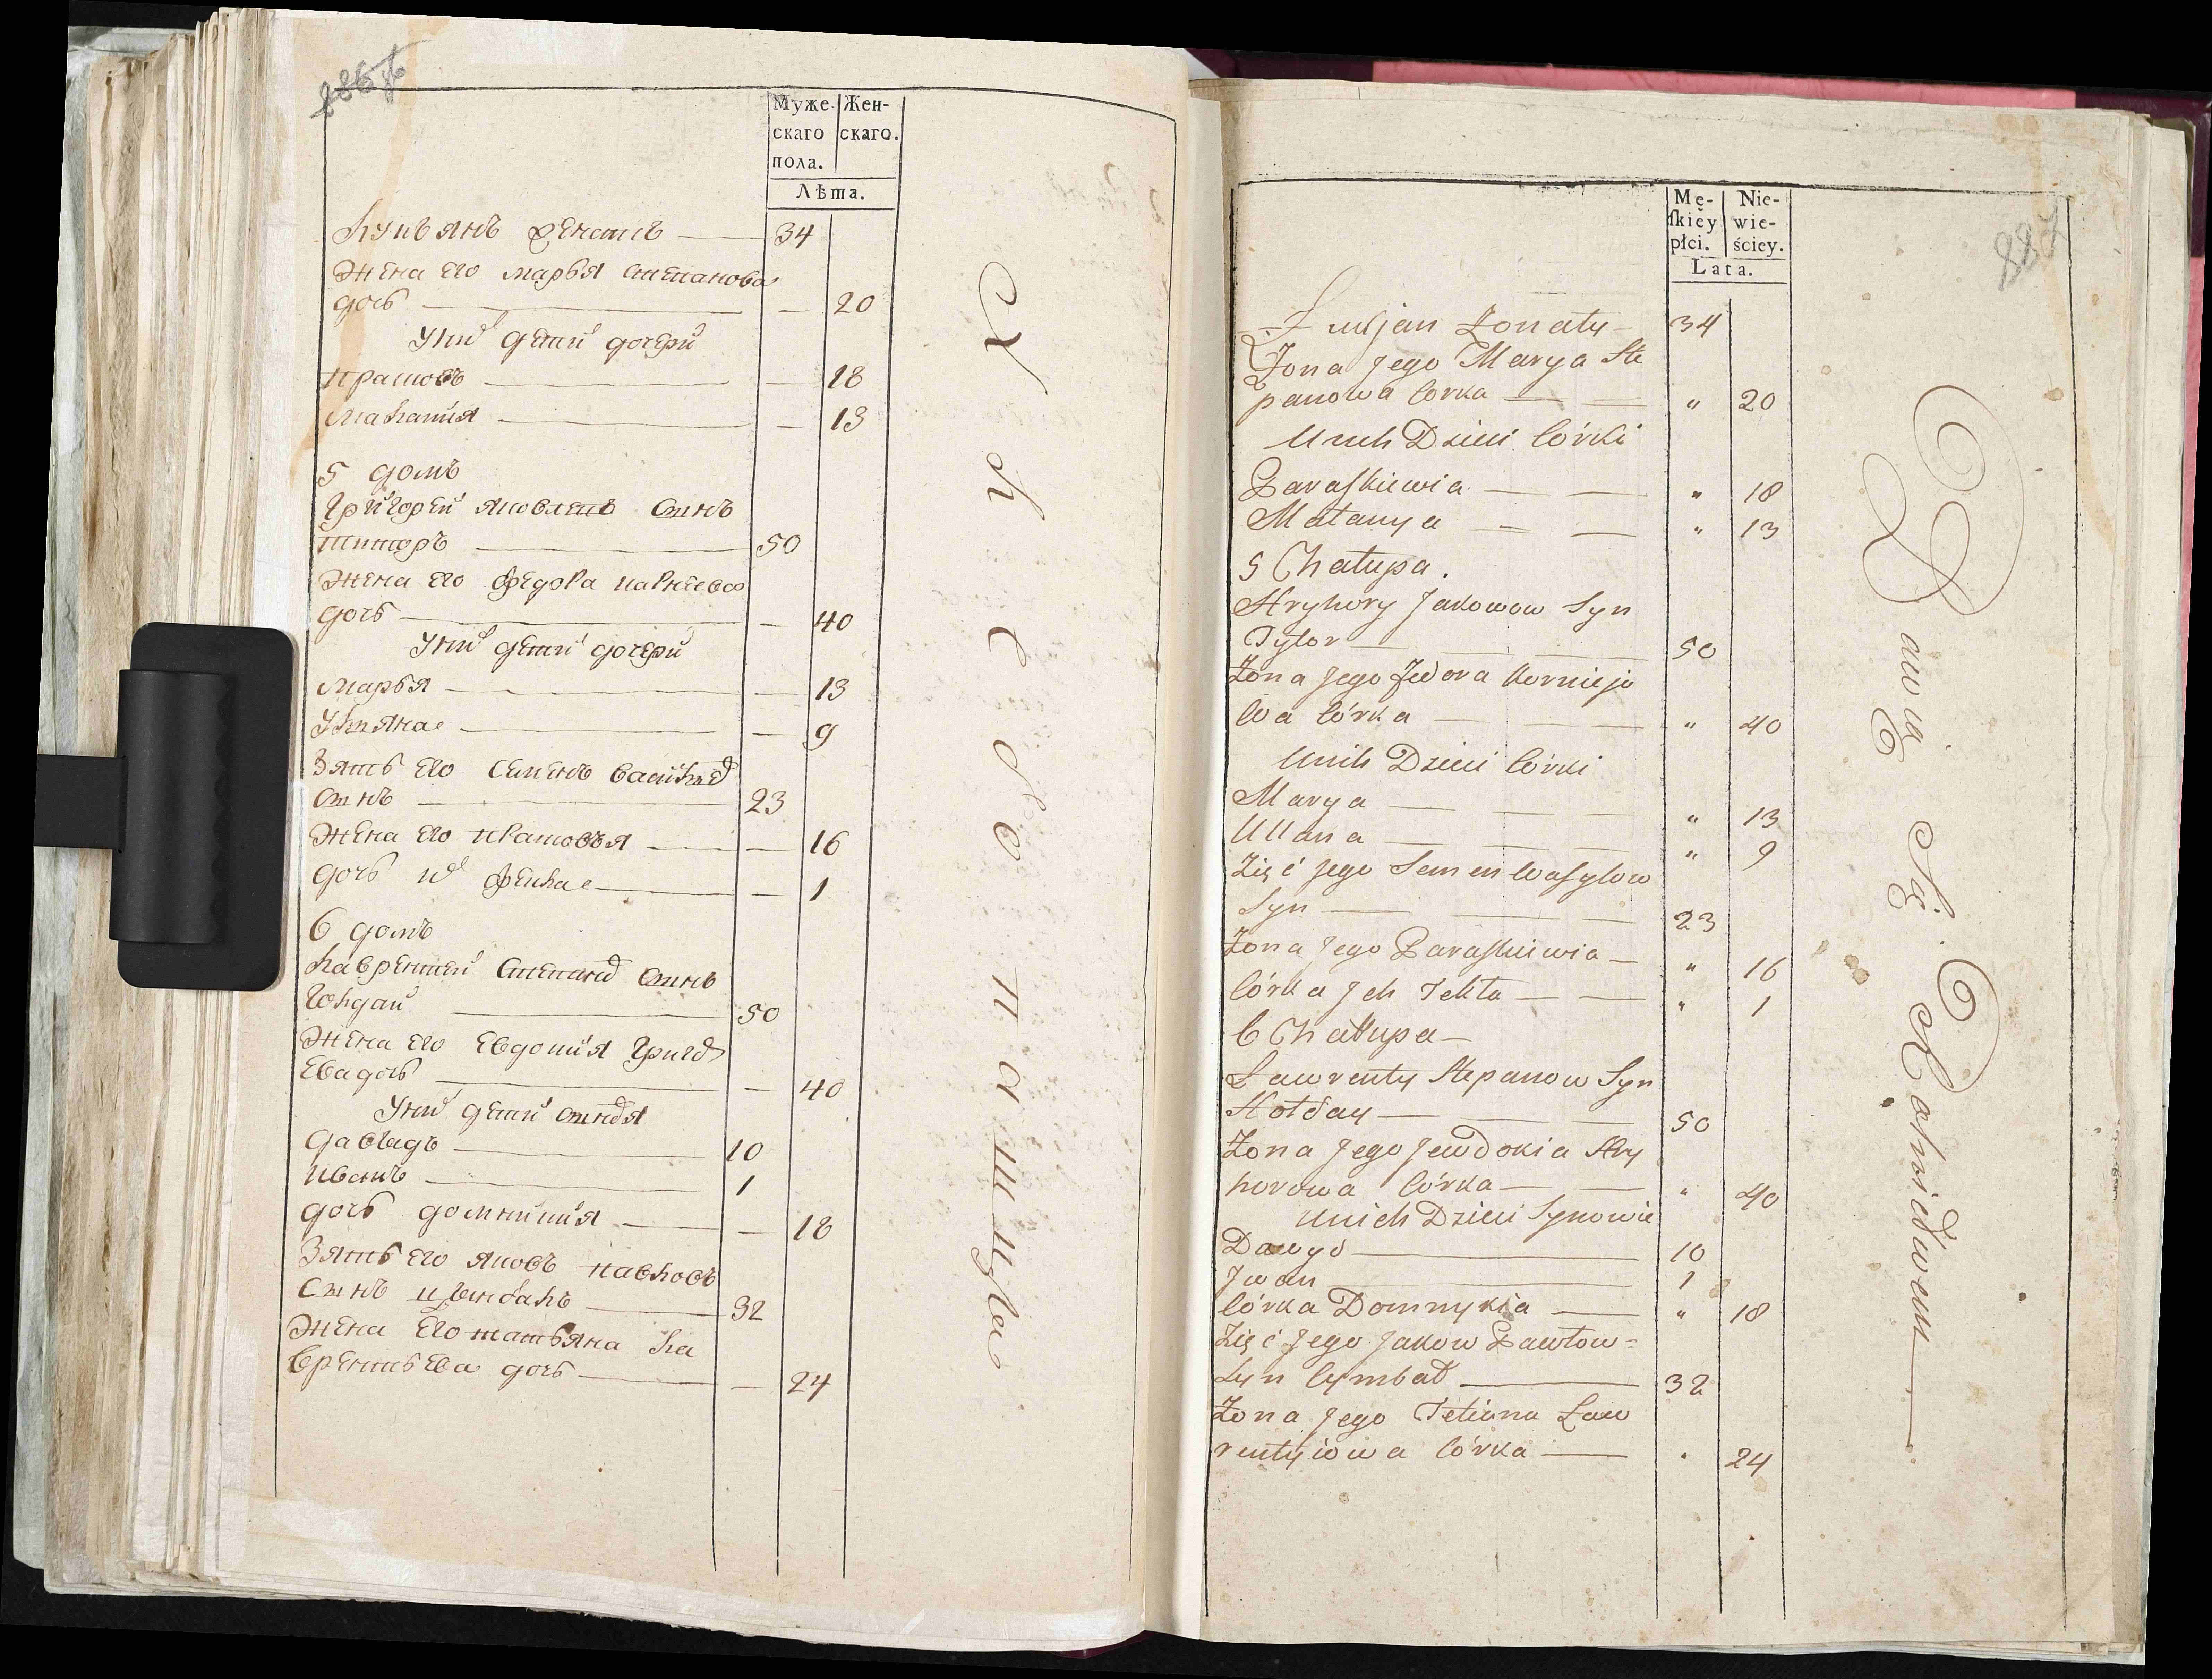 Муже- Жен-
скаго скаго.
пола.
Лѣта.
34
Жена его марья степанова
дочь — — 20
Унихъ дети дочери
— 18
Малания — — 13
5 домъ
Григорей яковлевъ сынъ
титоръ — 50
Жена его федора карнеева
дочь — — 40
Унихъ дети дочери
марья — — 13
Ульяна — — 9
Зять его семенъ василевъ
сынъ — 23
Жена его — 16
дочь ихъ фекла — — 1
6 домъ
Лаврентей степановъ сынъ
голдай — 50
Жена его евдокия григорь
ева дочь — — 40
Унихъ дети сыновя
давыдъ — 10
иванъ — 1
дочь домникия — — 18
Зять его яковъ павловъ
сынъ цымбалъ — 32
Жена его татьяна ла
врентьева дочь — — 24
887
Mę- Nie-
skiéy wie-
płci. ściey.
Lata.
Łukjan Żonaty — 34
Żona Jego Marya Ste
panowa Corka — — " 20
Unich Dzieci Córki
Paraskiewia — — " 18
Małanya — — " 13
5 Chałupa.
Hryhory Jakowow Syn
Tytor — — 50
Żona Jego Fedora Korniejo
wa Córka — — " 40
Unich Dzieci Córki
Marya — — " 13
Ullana — — " 9
Zięć Jego Semen Wasylow
Syn — — 23
Żona Jego Paraskiewia — " 16
Córka Jch Tekla — — " 1
6 Chałupa —
Ławrenty Stepanow Syn
Hołday — — 50
Żona Jego Jewdokia Hry
horowa Córka — — " 40
Unich Dzieci Synowie
Dawyd — 10
Jwan — 1
Córka Domnykia — " 18
Zięć Jego Jakow Pawłow=
Syn Cymbał — 32
Żona Jego Tetiana Ław
rentyiowa Córka — " 24